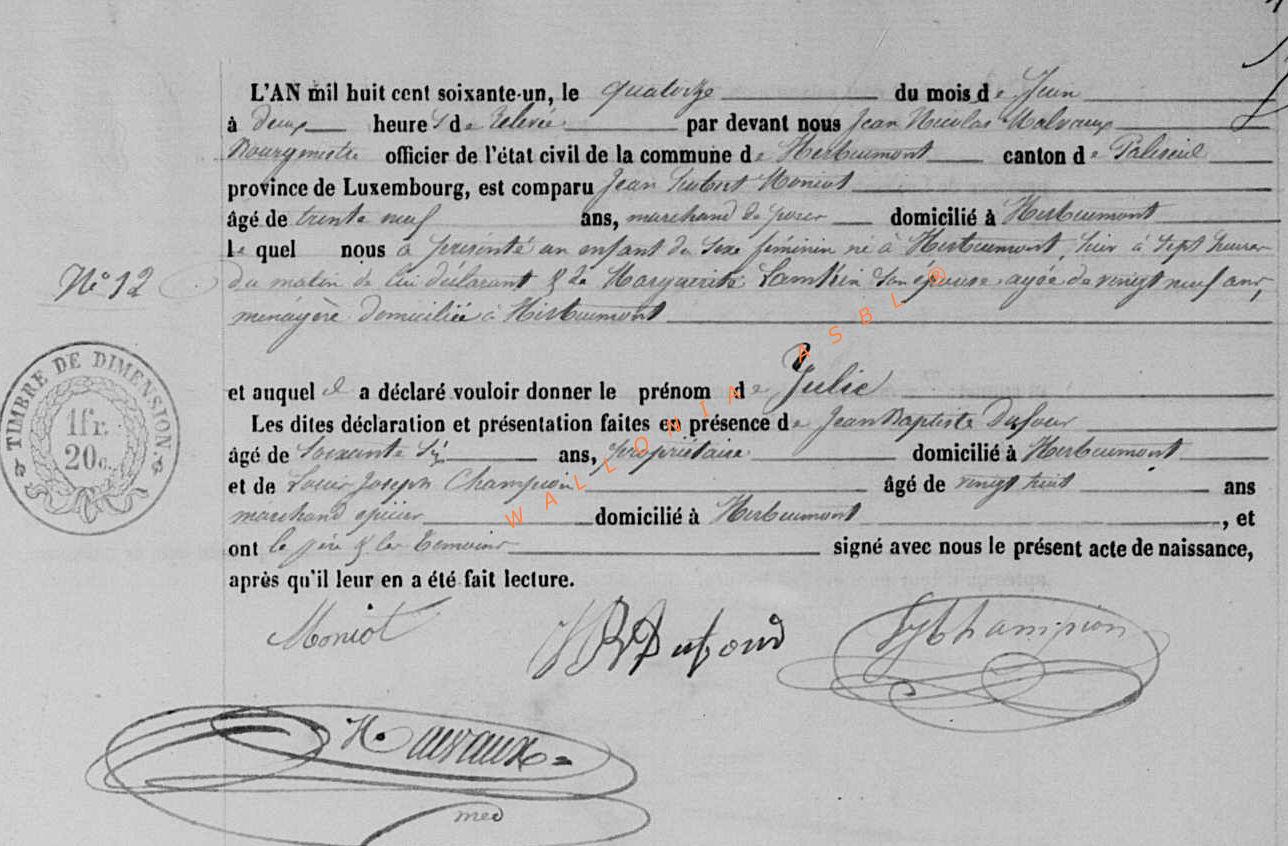 L'AN mil huit cent soixante-un, le quatorze du mois de Juin
à deux heures de relevée par devant nous Jean Nicolas Malvaux
Bourgmestre officier de l'état civil de la commune de Herbeumont canton de Paliseul
province de Luxembourg, est comparu Jean Hubert Moniot
âgé de trente neuf ans, marchand de domicilié à Herbeumont
le quel nous a présenté un enfant du sexe féminin né à Herbeumont, hier à sept heures
N° 12 du matin de lui déclarant & de Marguerite son épouse agée de vingt neuf ans,
ménagère domiciliée à Herbeumont
et auquel il a déclaré vouloir donner le prénom de Julie
Les dites déclaration et présentation faites en présence de Jean Baptiste Dufour
âgé de soixante six ans, propriétaire domicilié à Herbeumont
et de Louis Joseph Champion âgé de vingt huit ans
marchand épicier domicilié à Herbeumont, et
ont le père & les témoins signé avec nous le présent acte de naissance,
après qu'il leur en a été fait lecture.
TIMBRE DE DIMENSION.
1 fr.
20 c.
Moniot
Champion
WALLONIA ASBL ®